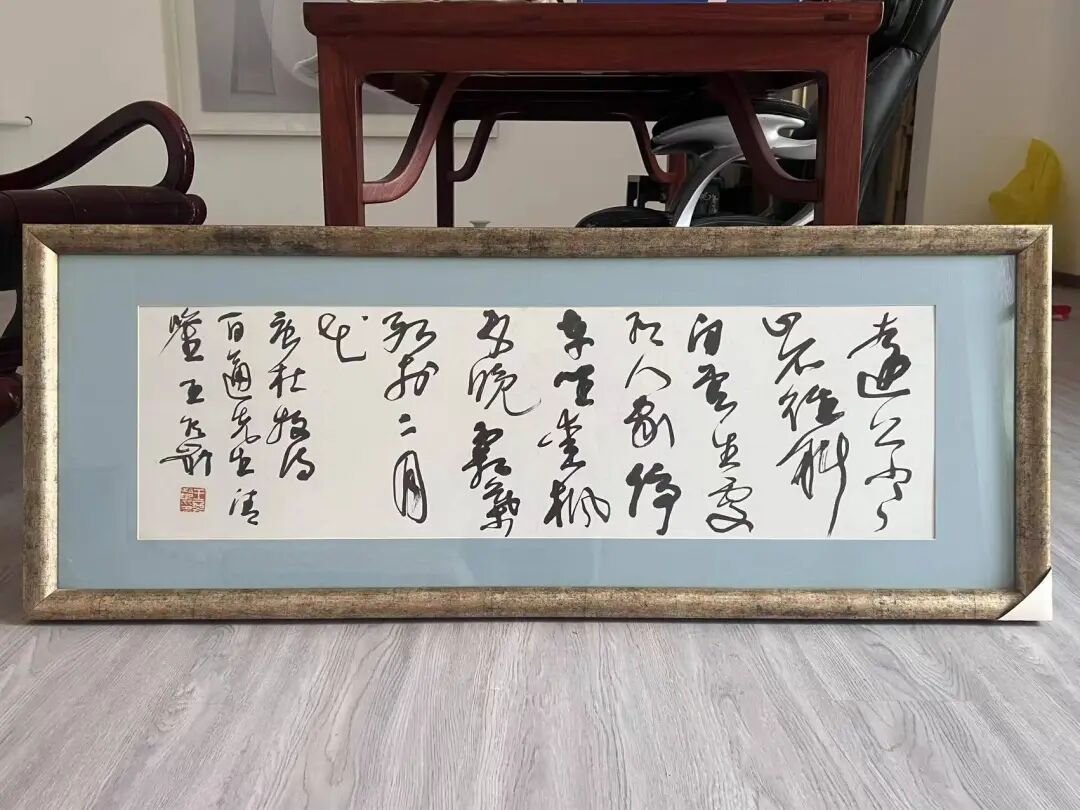 遠上寒
山石徑斜
白雲生處
有人家停
車坐愛楓
林晚霜葉
紅於二月
花
唐杜牧詩
百通先生清
鑒 王冬齡